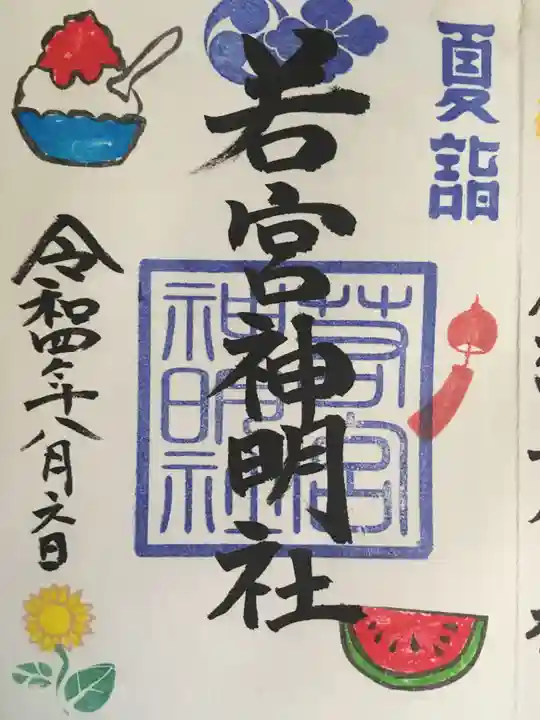 夏詣
若宮神明社
若宮
神明社
令和四年八月六日